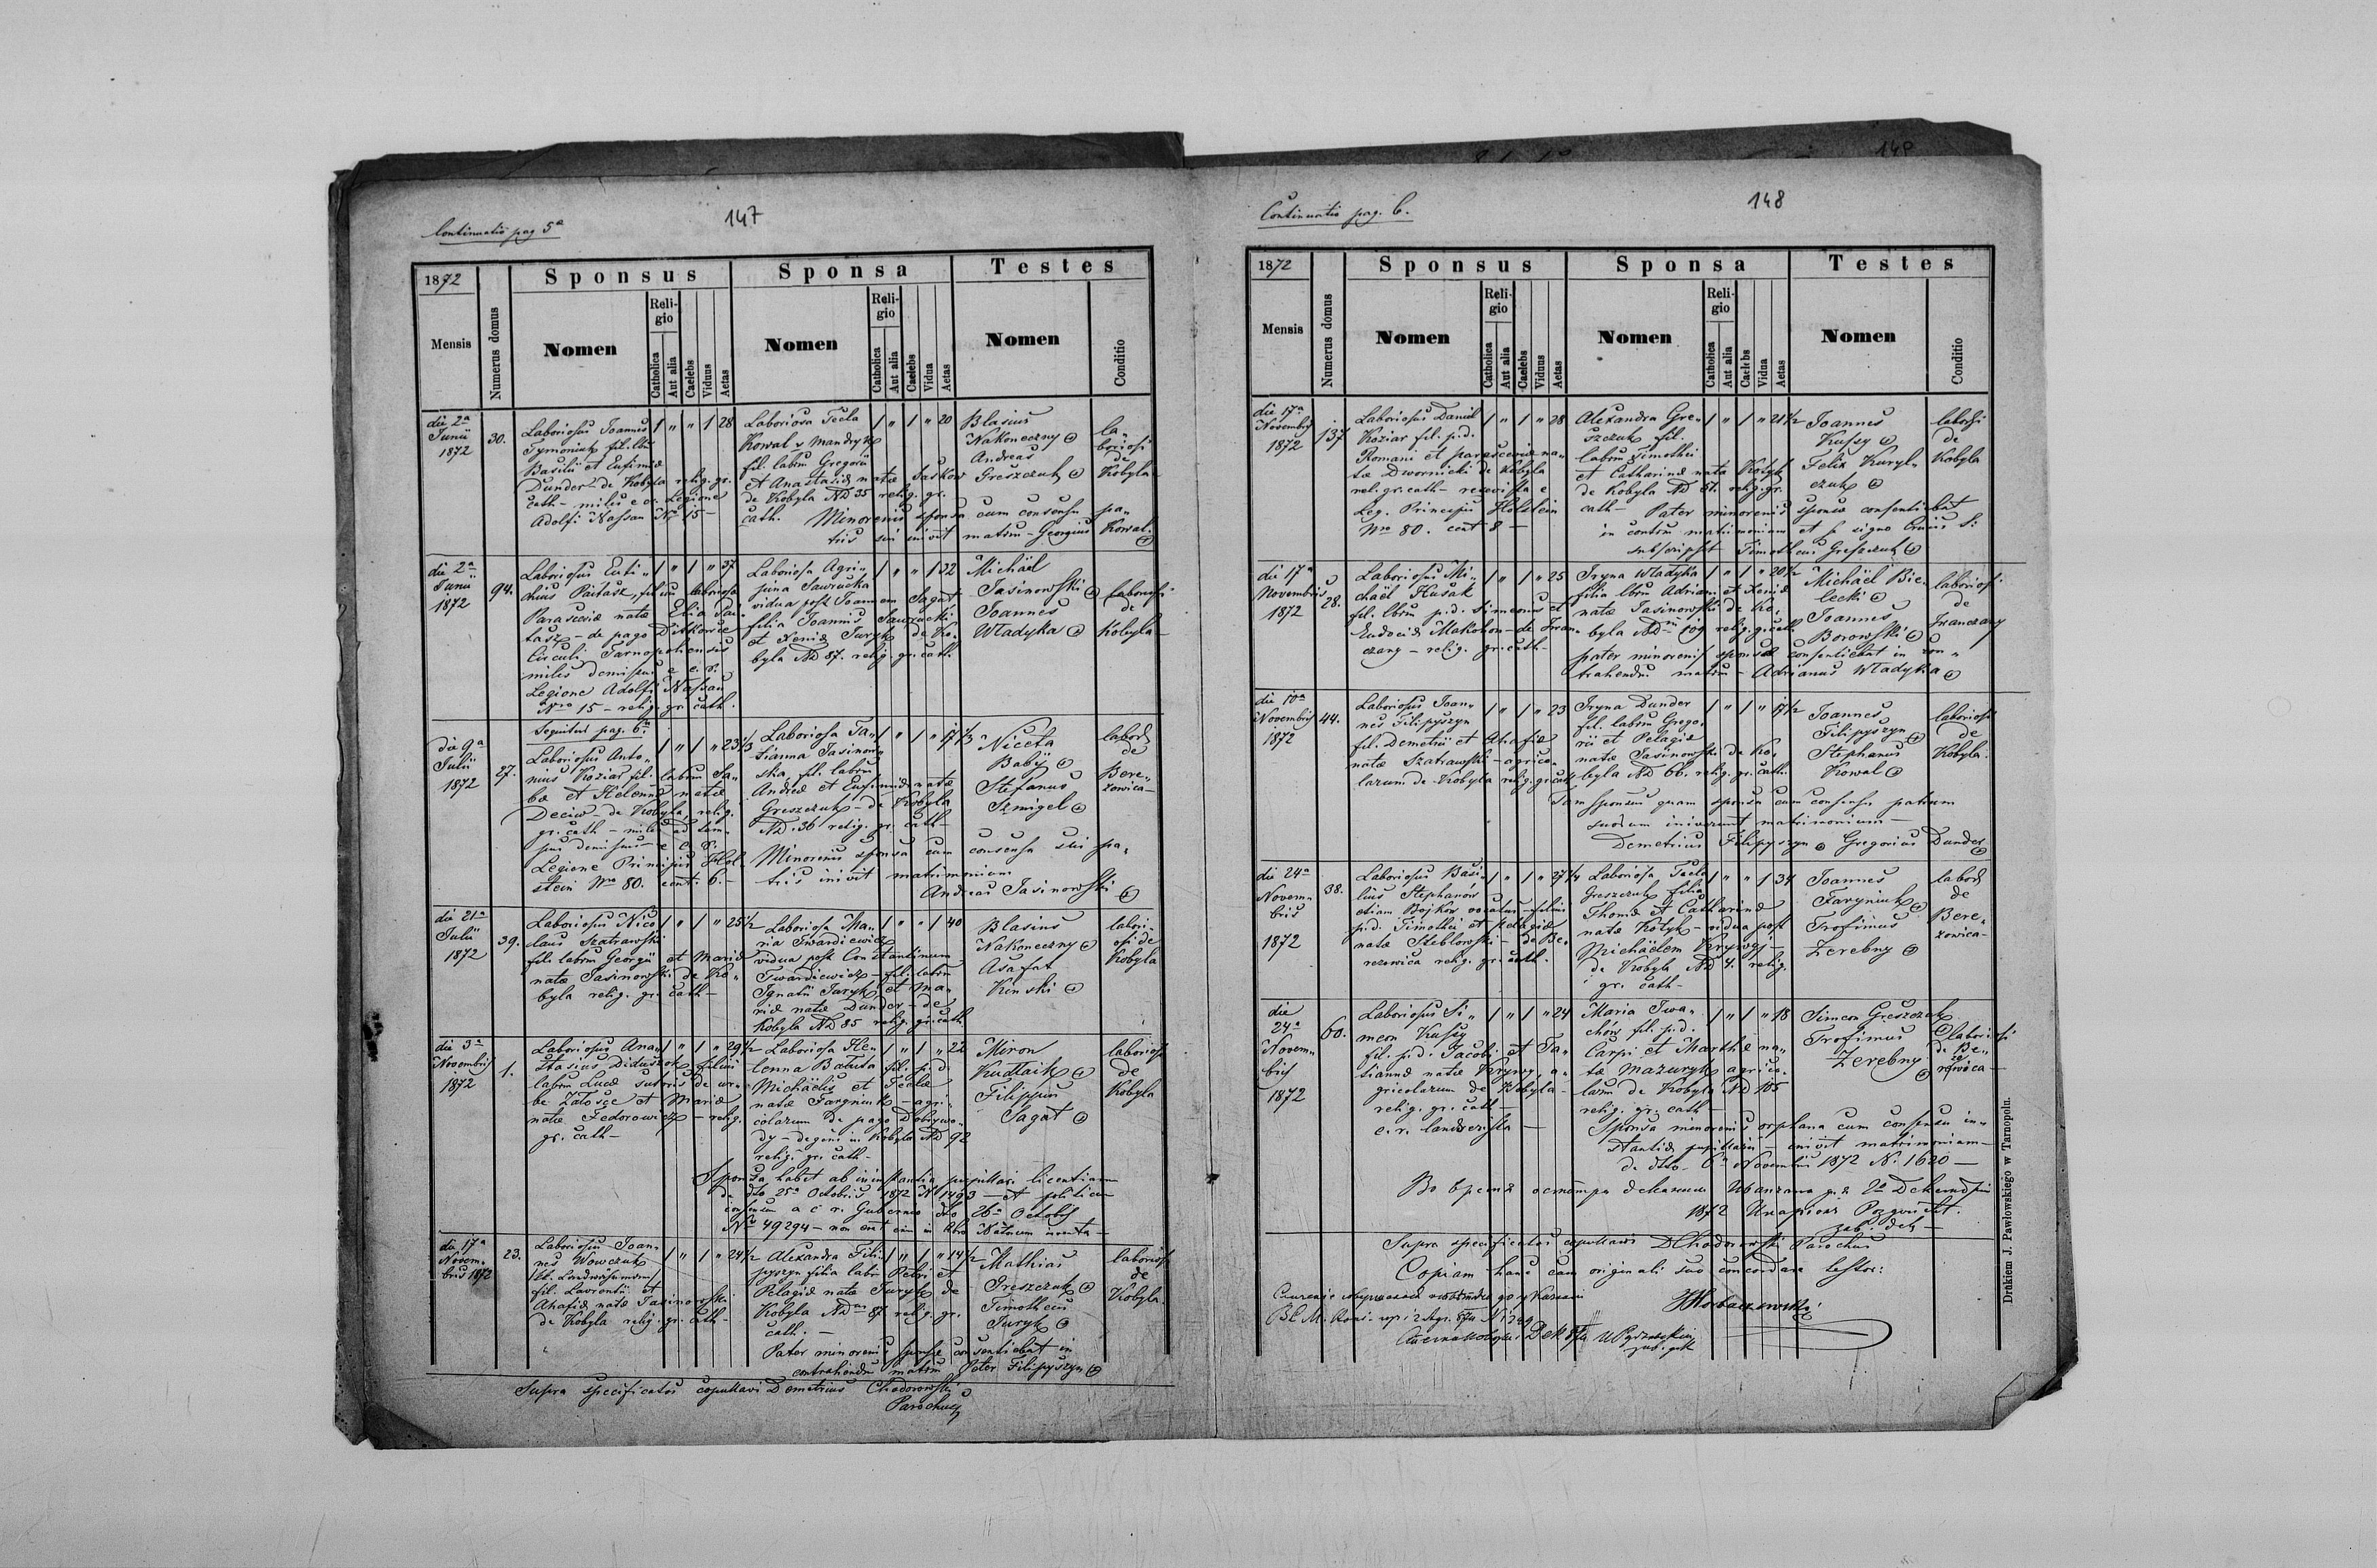 Continuatio pag 5ª
147
1872
Mensis
Numerus domus
Sponsus
Nomen
Religio
Catholica
Aut alia
Caelebs
Viduus
Aetas
Sponsa
Nomen
Religio
Catholica
Aut alia
Caelebs
Vidua
Aetas
Testes
Nomen
Conditio
die 2ª
Junii
1872
30.
Laboriosus Joannes
Tymoniuk fil. lbr.
Basilii et Eufimiæ
Dunder de Kobyla relig. gr.
cath – miles e c. r. Legione
Adolfi Nassau Nro 15 –
1 " " 1 28
Laboriosa Tecla
Kowal v Mandryk
fil. labrm Gregorii
et Anastasiæ natæ Jaskow
de Kobyla ND 35 relig. gr.
cath. Minorenis sponsa cum consensu pa-
tris sui inivit matrim – Georgius Kowal
1 " 1 " 20
Blasius
Nakoneczny
Andreas
Greszczuk
la-
boriosi
de
Kobyla
die 2ª
Junii
1872
94.
Laboriosus Euti-
chius Paitasz, filius laboriosæ
Parasceviæ natæ
de pago Ditkowce
Circuli Tarnopoliensis
miles demissus e c. r.
Legione Adolfi Nassau
Nro 15 – relig. gr. cath.
1 " 1 " 37
Laboriosa Agri-
pina Sawrucka
vidua post Joannem Sagat
filia Joannis Sawrucki
et Xeniæ Juryk de Ko-
byla ND 87. relig. gr. cath.
1 " " 1 32
Michael
Jasinowski
Joannes
Wladyka
laboriosi
de
Kobyla
Sequitur pag. 6.
die 9ª
Julii
1872
27.
Laboriosus Anto-
nius Koziar fil. labrm Sa-
bæ et Helennæ natæ
Deciw – de Kobyla, relig.
gr. cath – miles ad tem-
pus demissus – e c. r.
Legione Principis Hol-
stein Nro 80. cent. 6. –
1 " 1 " 23 1/3
Laboriosa Ta-
tianna Jasinow-
ska, fil. labrm
Andreæ et Eufimiæ natæ
Greszczuk – de Kobyla
ND. 36 relig. gr. cath –
Minorenis sponsa cum consensu sui pa-
tris inivit matrimonium
Andreas Jasinowski
1 " 1 " 17 1/3
Niceta
Babij
Stefanus
Szmigel
labor
de
Bere-
zowica –
die 21ª
Julii
1872
39.
Laboriosus Nico-
laus Szatrawski
fil. labrm Georgii et Mariæ
natæ Jasinowski de Ko-
byla relig. gr. cath –
1 " 1 " 25 1/2
Laboriosa Ma-
ria Twardiewicz
vidua post Constantinum
Twardiewicz – fil. labrm
Ignatii Juryk et Ma-
riæ natæ Dunder – de
Kobyla ND 85 relig. gr. cath
1 " " 1 40
Blasius
Nakoneczny
Asafat
Kinski
labori-
osi de
Kobyla
die 3ª
Novembris
1872
1.
Laboriosus Ana-
stasius Diduszok filius
labrm Lucæ sutoris de ur-
be Załosce et Mariæ
natæ Fedorowicz – relig.
gr. cath –
1 " 1 " 29 1/2
Laboriosa He-
lenna Batuta fil. p. d.
Michaelis et Teclæ
natæ Faryniuk – agri-
colarum de pago Dobrywo-
dy – degens in Kobyla ND 92
relig. gr. cath –
1 " 1 " 22
Miron
Kudlaik
Filippus
Sagat
laboriosi
de
Kobyla
Sponsa habet ab instantia pupillari licentiam
de dto 25ª Octobris 1872 N 1493 – et politicum
consensum a c. r. Gubernio dto 26ª Octobr
No 49294 – non est in libro Natorum inventa –
die 17ª
Novem-
bris 1872
23.
Laboriosus Joan-
nes Wowczuk
fil. Laurentii et
Ahafiæ natæ Jasinowski
de Kobyla relig. gr. cath –
1 " 1 " 24 1/2
Alexandra Fili-
pyszyn filia labr. Petri et
Pelagiæ natæ Juryk de
Kobyla NDus 87 relig. gr.
cath. –
Pater minorenis sponsæ consentiebat in
contrahendum matrim Peter Filipyszyn
1 " 1 " 14 1/2
Mathias
Greszczuk
Timotheus
Juryk
laboriosi
de
Kobyla
Supra specificatos copulavi Demetrius Chodorowski
Parochus
Continuatio pag. 6.
148
1872
Mensis
Numerus domus
Sponsus
Nomen
Religio
Catholica
Aut alia
Caelebs
Viduus
Aetas
Sponsa
Nomen
Religio
Catholica
Aut alia
Caelebs
Vidua
Aetas
Testes
Nomen
Conditio
die 17ª
Novembris
1872
137
Laboriosus Daniel
Koziar fil. p. d.
Romani et parasceviæ na-
tæ Dwornicki de Kobyla
reli. gr. cath – reservista e
Leg. Principis Holstein
Nro 80. cent 8 –
1 " 1 " 28
Alexandra Gre-
szczuk fil.
labrm Timothei
et Catharinæ natæ Kotyk
de Kobyla ND 51. relig. gr.
cath – Pater minorenis sponsæ consentiebat
in contrm matrimonium et p. signo Crucis S:
subscripsit Timotheus Greszczuk
1 " 1 " 21 1/2
Joannes
Kussy
Felix Kuryl-
czuk
laboriosi
de
Kobyla
die 17ª
Novembris
1872
28.
Laboriosus Mi-
chael Husak
fil. lbrm p. d. Simeonis et
Eudociæ Makohon – de Iwan-
czany – relig. gr. cath –
1 " 1 " 25
Iryna Wladyka
filia lbrm Adriani et Xeniæ
natæ Jasinowski de Ko-
byla NDus 109 relig. gr. cath
pater minorenis sponsæ consentiebat in con-
trahendum matrim – Adrianus Wladyka
1 " 1 " 20 1/2
Michael Bie-
lecki
Joannes
Borowski
laboriosi
de
Iwanczany
die 10ª
Novembris
1872
44.
Laboriosus Joan-
nes Filipyszyn
fil. Demetrii et Ahafiæ
natæ Szatrawski – agrico-
larum de Kobyla relig. gr. cath
1 " 1 " 23
Iryna Dunder
fil. labrm Grego-
rii et Pelagiæ
natæ Jasinowski de Ko-
byla ND 66. relig. gr. cath.
1 " 1 " 17 1/2
Joannes
Filipyszyn
Stephanus
Kowal
laboriosi
de
Kobyla
Tam sponsus quam sponsa cum consensu patrum
suorum inierunt matrimonium –
Demetrius Filipyszyn Gregorius Dunder
die 24ª
Novem-
bris
1872
38.
Laboriosus Basi-
lius Stephanów
etiam Bojkow vocatus – filius
p. d. Timothei et Pelagiæ
natæ Steblowski – de Be-
rezowica relig. gr. cath.
1 " 1 " 27 1/4
Laboriosa Tecla
Greszczuk filia
Thomæ et Catharinæ
natæ Kotyk – vidua post
Michaelem Krywyj –
de Kobyla ND 4. relig.
gr. cath –
1 " " 1 34
Joannes
Faryniuk
Trofimus
Zerebny
labor
de
Bere-
zowica –
die
24ª
Novem-
bris
1872
60.
Laboriosus Si-
meon Kussy
fil. p. d. Jacobi et Ta-
tiannæ natæ Krywy, a-
gricolarum de Kobyla –
relig. gr. cath –
c. r. landwerista –
1 " 1 " 24
Maria Iwa-
chów fil. p. d.
Carpi et Marthæ na-
tæ Mazuryk agrico-
larum de Kobyla ND 105
relig. gr. cath –
Sponsa minorenis orphana cum consensu in-
stantiæ pupillaris – inivit matrimonium –
de dto. 6ª Novembris 1872 N. 1620 –
1 " 1 " 18
Simeon Greszczuk
Trofimus
Zerebny
laboriosi
de Be-
rezowica –
1872
Supra specificatos copulavi DChodorowski Parochus
Copiam hanc cum originali suo concordare testor:
Drukiem J. Pawłowskiego w Tarnopolu.